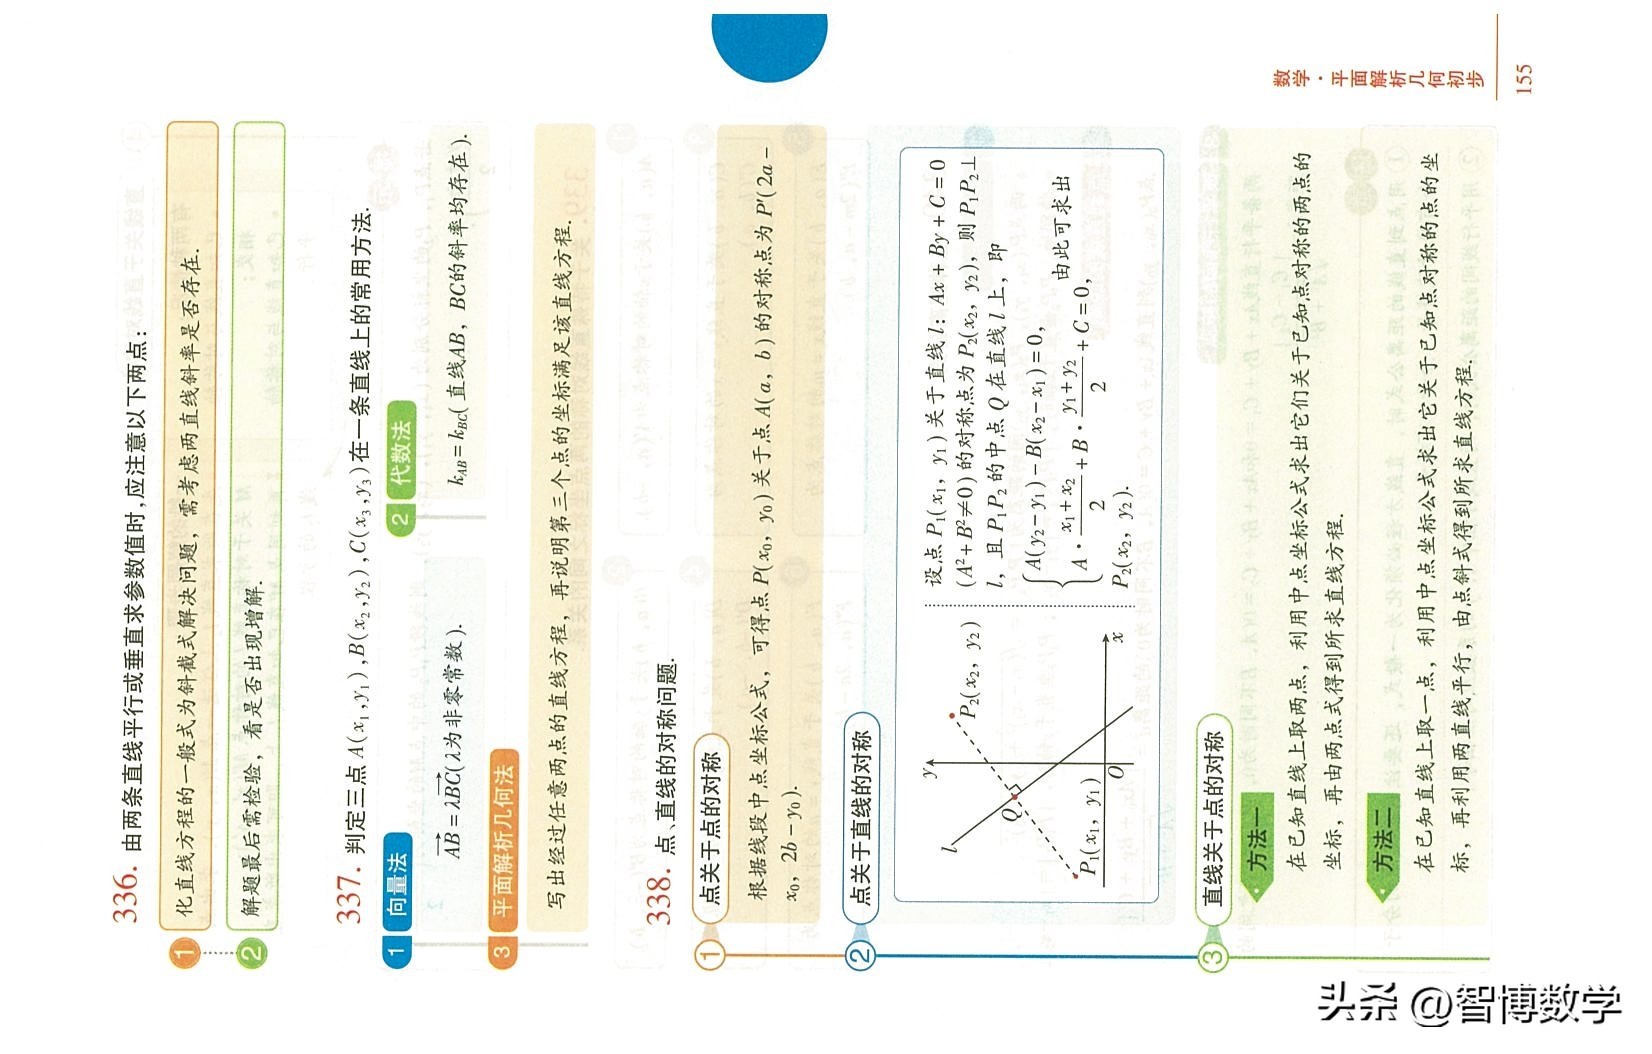 336. 由两条直线平行或垂直求参数值时,应注意以下两点:
1 化直线方程的一般式为斜截式解决问题，需考虑两直线斜率是否存在.
2 解题最后需检验，看是否出现增解.
337. 判定三点A(x₁,y₁),B(x₂,y₂),C(x₃,y₃)在一条直线上的常用方法.
1 向量法
AB=λBC(λ为非零常数).
2 代数法
k_AB=k_BC(直线AB，BC的斜率均存在).
3 平面解析几何法
写出经过任意两点的直线方程，再说明第三个点的坐标满足该直线方程.
338. 点、直线的对称问题.
① 点关于点的对称
根据线段中点坐标公式，可得点P(x₀，y₀)关于点A(a，b)的对称点为P′(2a−
x₀，2b−y₀).
② 点关于直线的对称
y
l
P₂(x₂，y₂)
Q
P₁(x₁，y₁)
O
x
设点P₁(x₁，y₁)关于直线l：Ax+By+C=0
(A²+B²≠0)的对称点为P₂(x₂，y₂)，则P₁P₂⊥
l，且P₁P₂的中点Q在直线l上，即
{A(y₂−y₁)−B(x₂−x₁)=0,
A·(x₁+x₂)/2+B·(y₁+y₂)/2+C=0, 由此可求出
P₂(x₂，y₂).
③ 直线关于点的对称
方法一
在已知直线上取两点，利用中点坐标公式求出它们关于已知点对称的两点的
坐标，再由两点式得到所求直线方程.
方法二
在已知直线上取一点，利用中点坐标公式求出它关于已知点对称的点的坐
标，再利用两直线平行，由点斜式得到所求直线方程.
数学·平面解析几何初步
155
头条 @智博数学